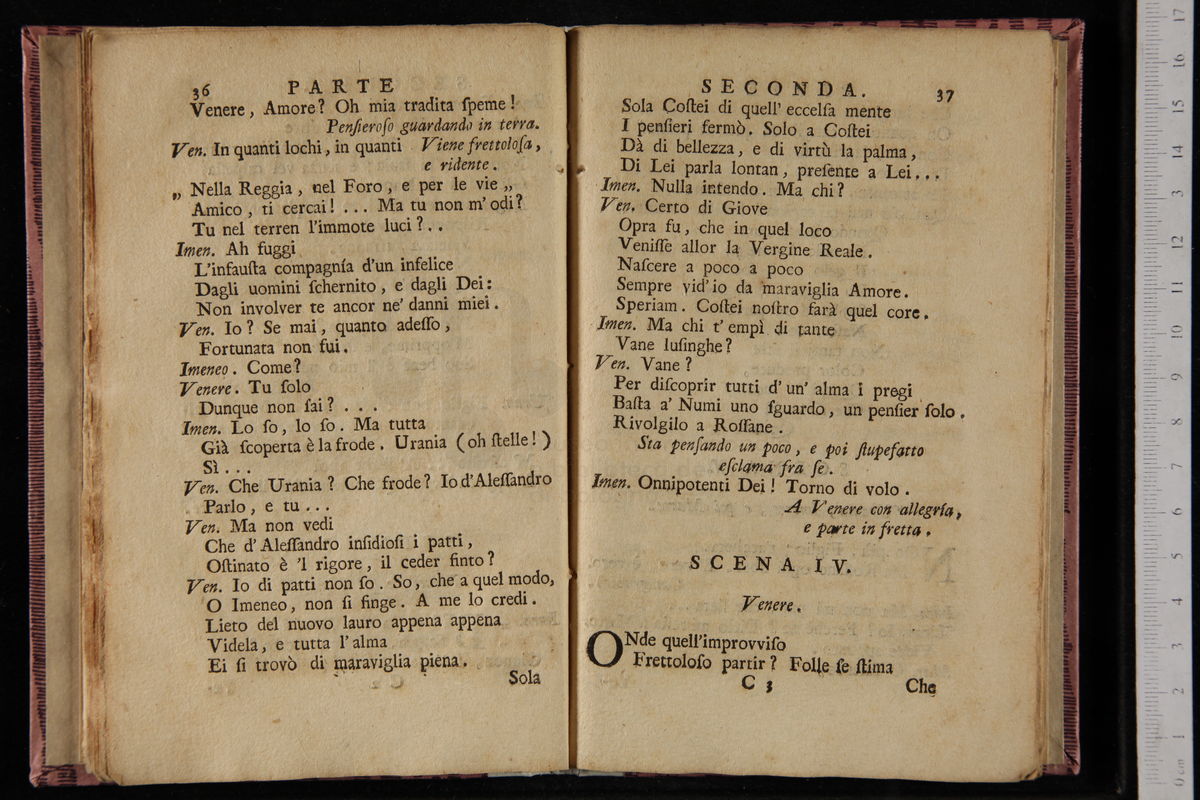 36 PARTE
Venere, Amore? Oh mia tradita ſpeme!
Penſieroſo guardando in terra.
Ven. In quanti lochi, in quanti Viene frettoloſa,
e ridente.
„ Nella Reggia, nel Foro, e per le vie „
Amico, ti cercai! ... Ma tu non m' odi?
Tu nel terren l'immote luci?..
Imen. Ah fuggi
L'infauſta compagnía d'un infelice
Dagli uomini ſchernito, e dagli Dei:
Non involver te ancor ne' danni miei.
Ven. Io? Se mai, quanto adeſſo,
Fortunata non fui.
Imeneo. Come?
Venere. Tu ſolo
Dunque non ſai? ...
Imen. Lo ſo, lo ſo. Ma tutta
Già ſcoperta è la frode. Urania (oh ſtelle!)
Sì...
Ven. Che Urania? Che frode? Io d'Aleſſandro
Parlo, e tu...
Ven. Ma non vedi
Che d'Aleſſandro inſidioſi i patti,
Oſtinato è 'l rigore, il ceder finto?
Ven. Io di patti non ſo. So, che a quel modo,
O Imeneo, non ſi finge. A me lo credi.
Lieto del nuovo lauro appena appena
Videla, e tutta l'alma
Ei ſi trovò di maraviglia piena.
Sola
SECONDA. 37
Sola Coſtei di quell' eccelſa mente
I penſieri fermò. Solo a Coſtei
Dà di bellezza, e di virtù la palma,
Di Lei parla lontan, preſente a Lei...
Imen. Nulla intendo. Ma chi?
Ven. Certo di Giove
Opra fu, che in quel loco
Veniſſe allor la Vergine Reale.
Naſcere a poco a poco
Sempre vid' io da maraviglia Amore.
Speriam. Coſtei noſtro farà quel core.
Imen. Ma chi t' empì di tante
Vane luſinghe?
Ven. Vane?
Per diſcoprir tutti d' un' alma i pregi
Baſta a' Numi uno ſguardo, un penſier ſolo.
Rivolgilo a Roſſane.
Sta penſando un poco, e poi ſtupefatto
eſclama fra ſe.
Imen. Onnipotenti Dei! Torno di volo.
A Venere con allegría,
e parte in fretta.
SCENA IV.
Venere.
ONde quell'improvviſo
Frettoloſo partir? Folle ſe ſtima
C 3 Che
0 cm 1 2 3 4 5 6 7 8 9 10 11 12 13 14 15 16 17